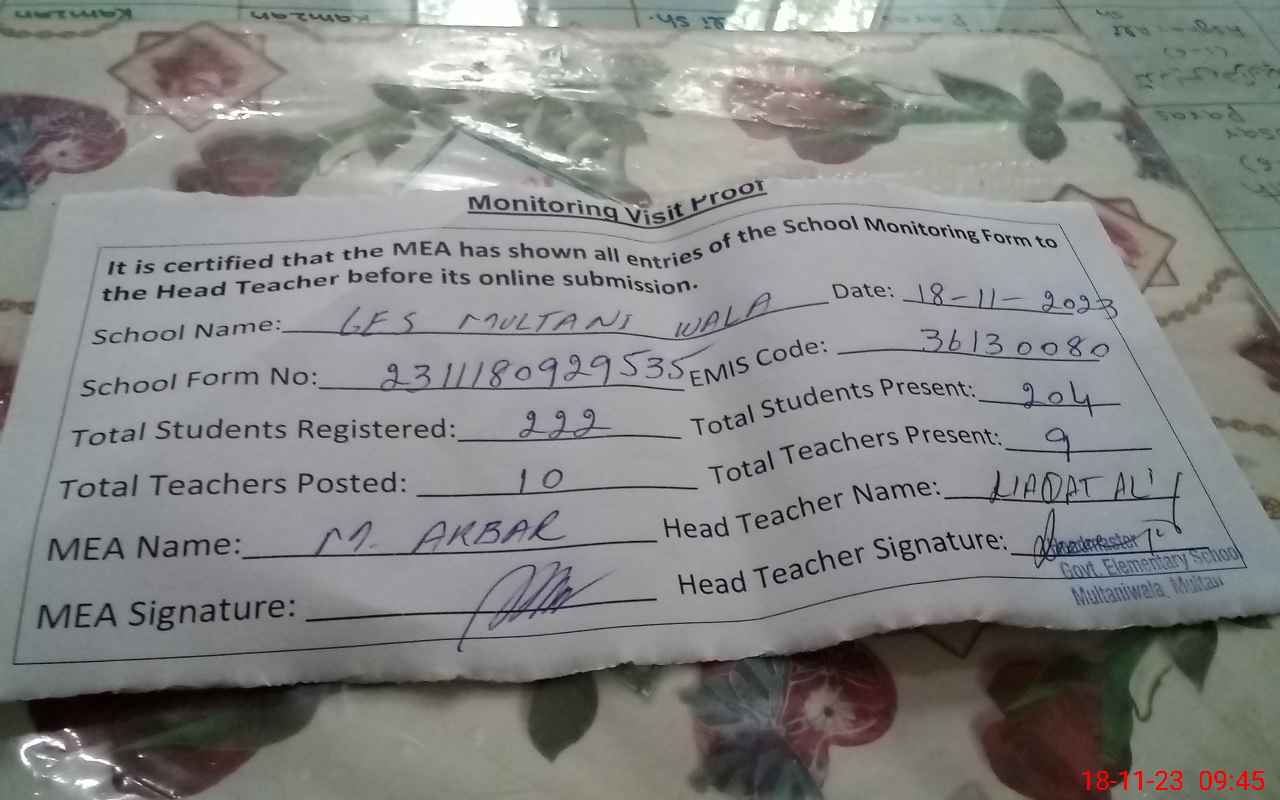 Monitoring Visit Proof
It is certified that the MEA has shown all entries of the School Monitoring Form to
the Head Teacher before its online submission.
School Name: GES MULTANI WALA Date: 18-11-2023
School Form No: 2311180929535 EMIS Code: 36130080
Total Students Registered: 222 Total Students Present: 204
Total Teachers Posted: 10 Total Teachers Present: 9
MEA Name: M. AKBAR Head Teacher Name: LIAQAT ALI
MEA Signature: Head Teacher Signature:
Headmaster
Govt. Elementary School
Multaniwala, Multan
18-11-23 09:45